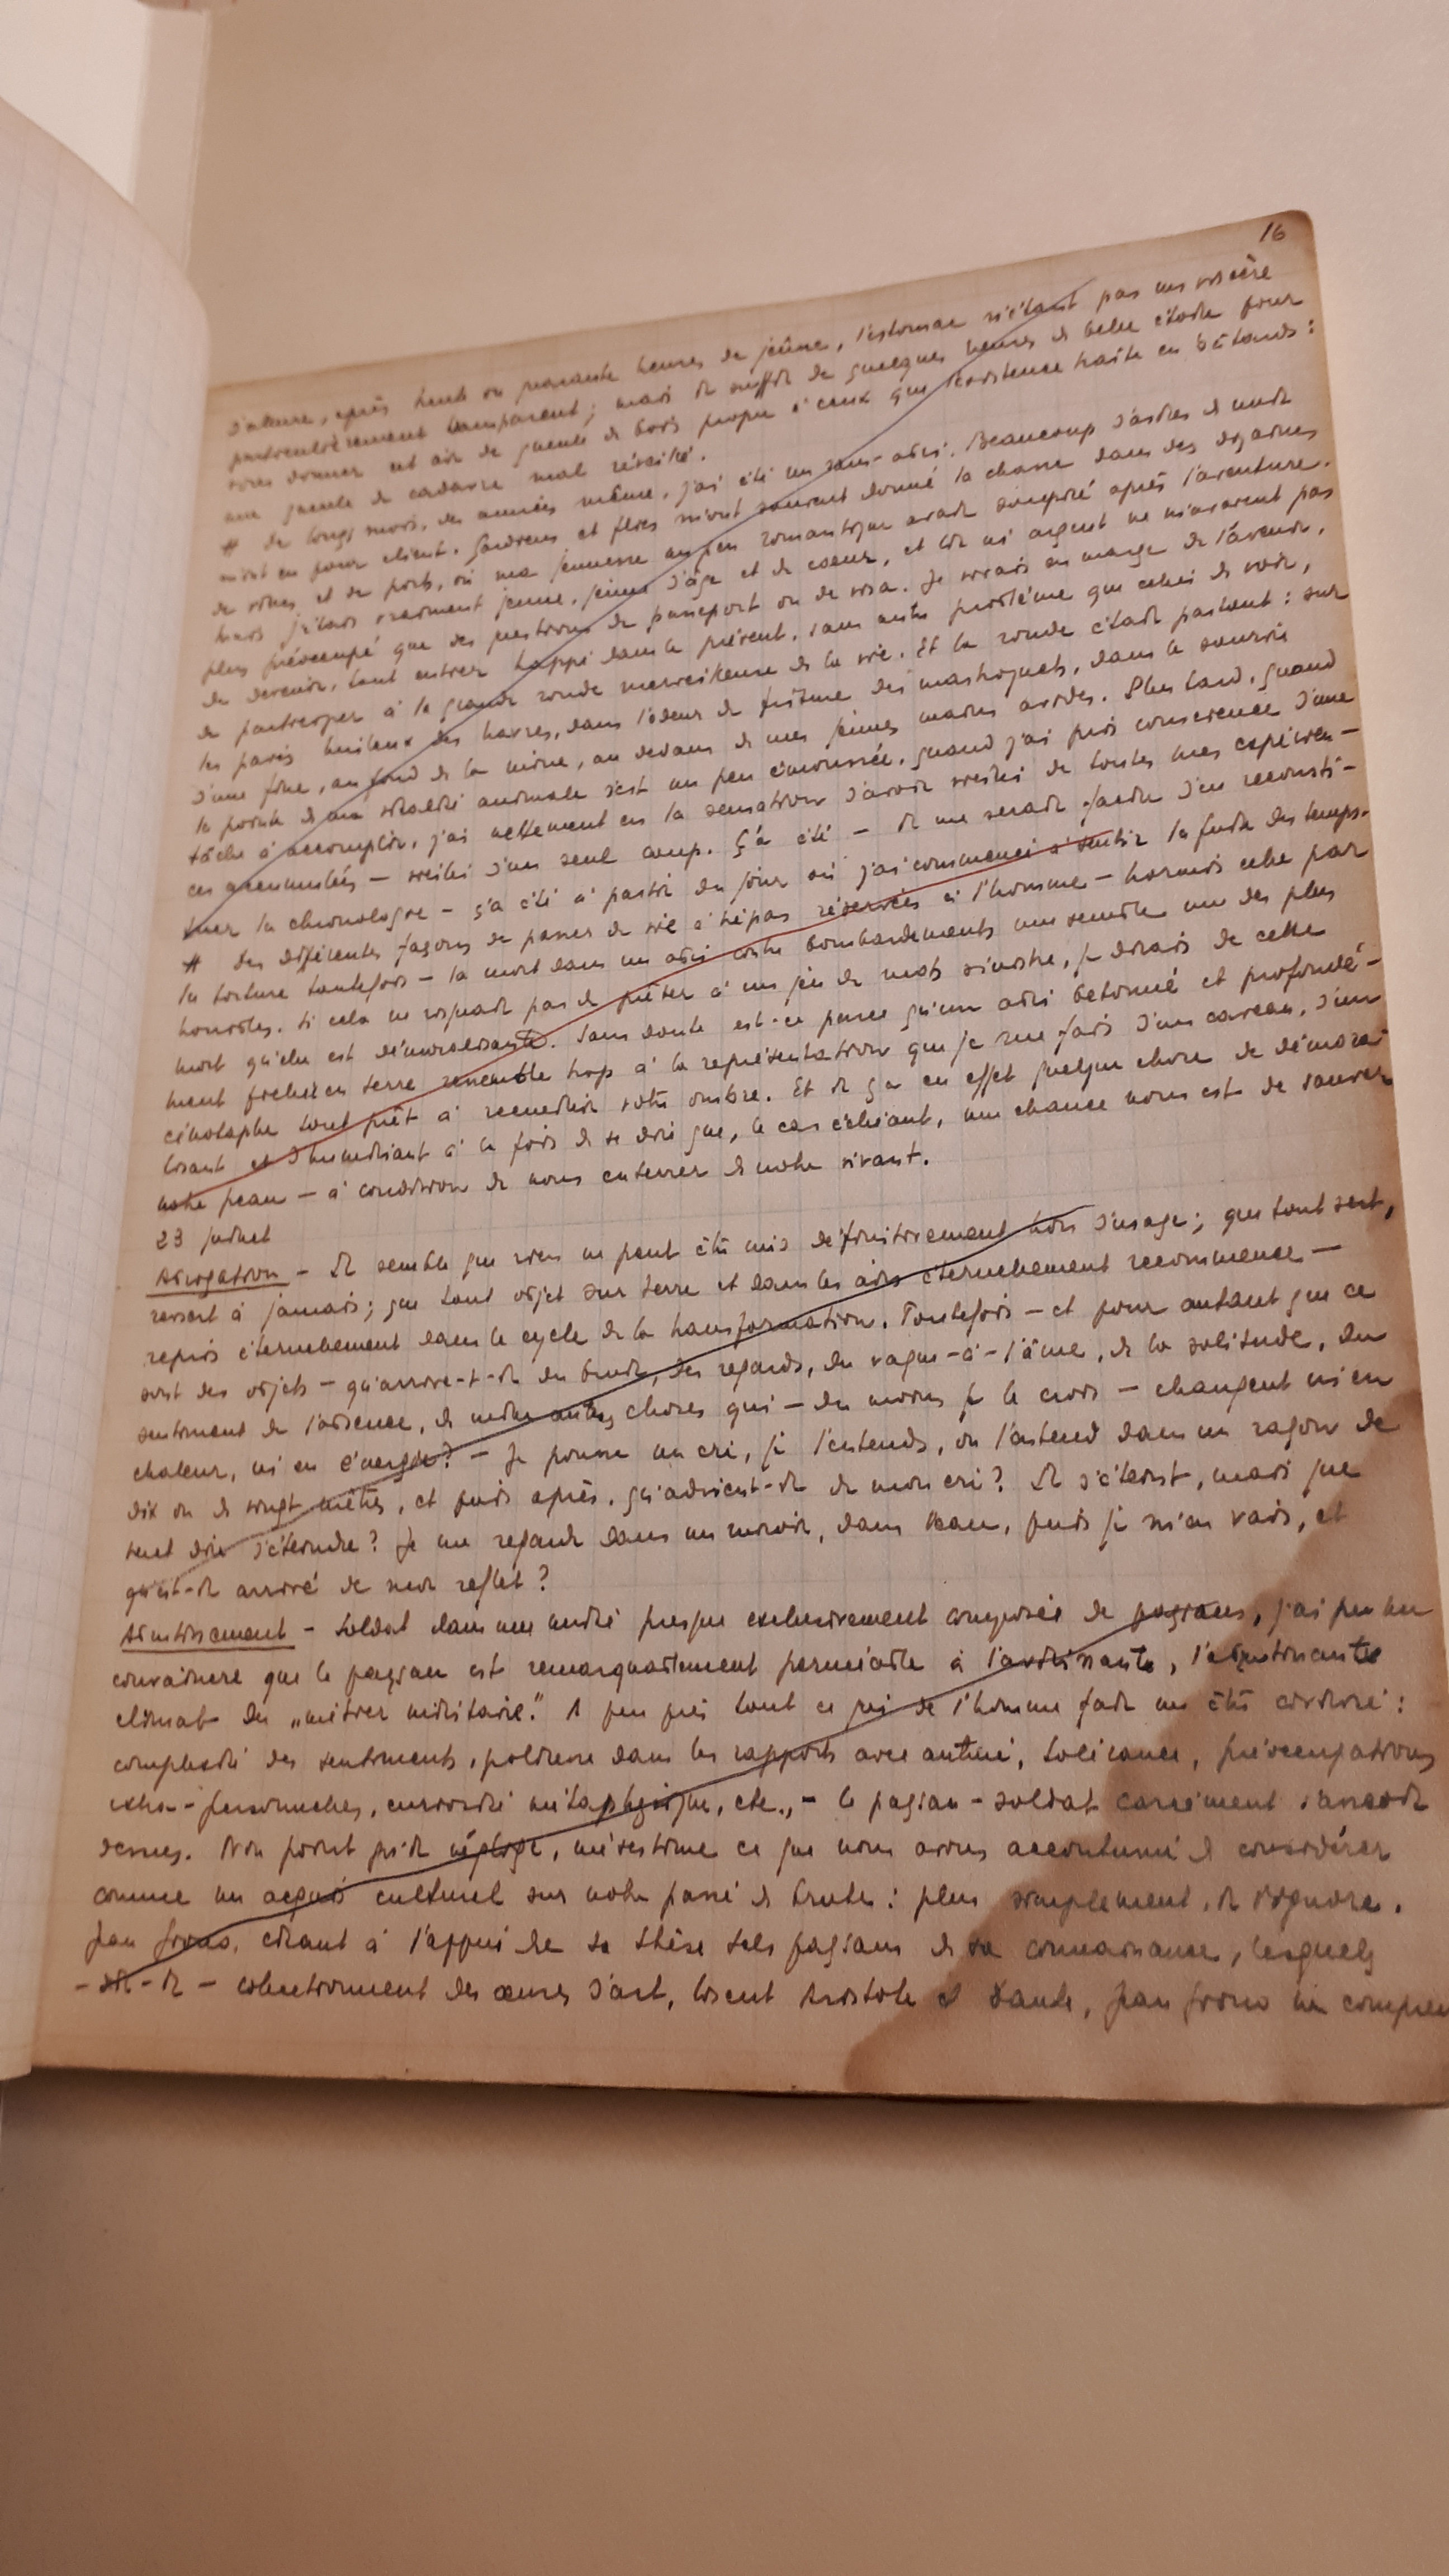 16
d'ailleurs, après trente ou quarante heures de jeûne, l'estomac n'étant pas un viscère
particulièrement transparent ; mais il suffit de quelques heures de belle étoile pour
vous donner cet air de gueule de bois propre à ceux que l'existence traite en bâtards :
une gueule de cadavre mal réveillé.
# De longs mois, des années même, j'ai été un sans-abri. Beaucoup d'asiles de nuit
m'ont eu pour client. Gardiens et flics m'ont souvent donné la chasse dans des dizaines
de villes et de ports, où ma jeunesse un peu romantique avait soupiré après l'aventure.
Mais j'étais vraiment jeune, jeune d'âge et de coeur, et lit ni argent ne m'avaient pas
plus préoccupé que des questions de passeport ou de visa. Je vivais en marge de l'avenir,
du devenir, tout entier happé dans le présent, sans autre problème que celui de voir,
de participer à la grande ronde merveilleuse de la vie. Et la ronde était partout : sur
les pavés huileux des havres, dans l'odeur de friture des mastroquets, dans le sourire
d'une fille, au fond de la mine, au dedans de mes jeunes mains avides. Plus tard, quand
la pointe de ma vitalité animale s'est un peu émoussée, quand j'ai pris conscience d'une
tâche à accomplir, j'ai nettement eu la sensation d'avoir vieilli de toutes mes expérien-
ces accumulées — vieilli d'un seul coup. Ça a été — il me serait facile d'en reconsti-
tuer la chronologie — ç'a été à partir du jour où j'ai commencé à sentir la fuite du temps.
# Des différentes façons de passer de vie à trépas réservées à l'homme — hormis celle par
la torture toutefois — la mort dans un abri contre bombardements me semble une des plus
horribles. Si cela ne risquait pas de prêter à un jeu de mots sinistre, je dirais de cette
mort qu'elle est démoralisante. Sans doute est-ce parce qu'un abri bétonné et profondé-
ment fiché en terre ressemble trop à la représentation que je me fais d'un caveau, d'un
cénotaphe tout prêt à recueillir votre ombre. Et il y a en effet quelque chose de démora-
lisant et d'humiliant à la fois de se dire que, le cas échéant, une chance nous est de sauver
notre peau — à condition de nous enterrer de notre vivant.
23 juillet
Abrogation — Il semble que rien ne peut être mis définitivement hors d'usage ; que tout sert,
ressert à jamais ; que tout objet sur terre et dans les airs éternellement recommence —
repris éternellement dans le cycle de la transformation. Toutefois — et pour autant que ce
sont des objets — qu'arrive-t-il du bruit, des regards, du vague-à-l'âme, de la solitude, du
sentiment de l'absence, de mille autres choses qui — du moins je le crois — changent ni en
chaleur, ni en énergie ? — Je pousse un cri, je l'entends, on l'entend dans un rayon de
dix ou de vingt mètres, et puis après, qu'advient-il de mon cri ? Il s'éteint, mais que
veut dire s'éteindre ? Je me regarde dans un miroir, dans l'eau, puis je m'en vais, et
qu'est-il arrivé de mon reflet ?
Abrutissement — Soldat dans une unité presque exclusivement composée de paysans, j'ai pu me
convaincre que le paysan est remarquablement perméable à l'avilissante, l'abrutissante
climat du „métier militaire." A peu près tout ce qui de l'homme fait un être civilisé :
complexité des sentiments, politesse dans les rapports avec autrui, tolérance, préoccupations
extra-personnelles, curiosité métaphysique, etc., — le paysan-soldat carrément s'assoit
dessus. Non point qu'il néglige, mésestime ce que nous avons accoutumé de considérer
comme un acquis culturel sur notre passé de brute : plus simplement, il l'ignore.
Jean Giono, citant à l'appui de sa thèse tels paysans de sa connaissance, lesquels
— dit-il — collectionnent des œuvres d'art, lisent Aristote et Dante, Jean Giono ne